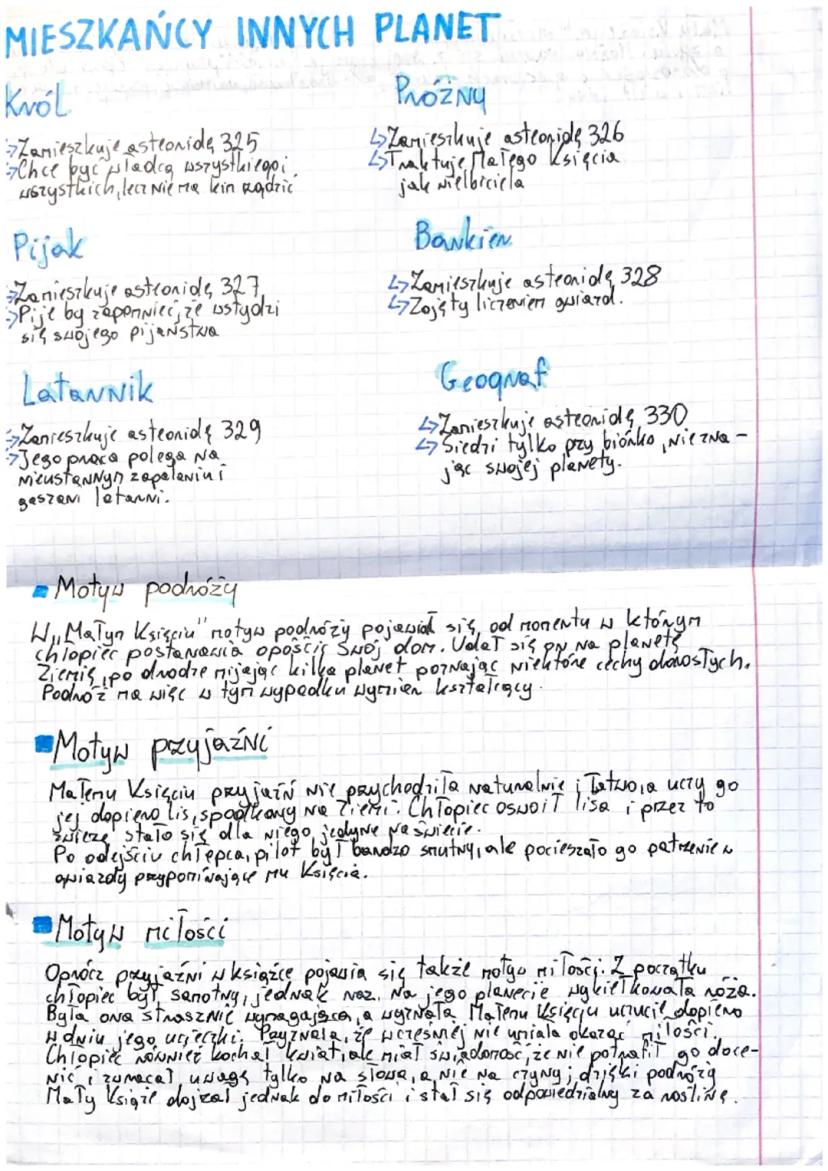 MIESZKAŃCY INNYCH PLANET
Król
↳Zamieszkuje asteroidę 325
↳Chce być władcą wszystkiego i
wszystkich, lecz nie ma kim rządzić
Próżny
↳Zamieszkuje asteroidę 326
↳Traktuje Małego Księcia
jak wielbiciela
Pijak
↳Zamieszkuje asteroidę 327
↳Pije by zapomnieć, że wstydzi
się swojego pijaństwa
Bankier
↳Zamieszkuje asteroidę 328
↳Zajęty liczeniem gwiazd.
Latarnik
↳Zamieszkuje asteroidę 329
↳Jego praca polega na
nieustannym zapalaniu i
gaszeni latarni.
Geograf
↳Zamieszkuje asteroidę 330
↳Siedzi tylko przy biórko, nie zna-
jąc swojej planety.
Motyw podróży
W „Małym Księciu" motyw podróży pojawiał się, od momentu w którym
chłopiec postanawia opóścić swój dom. Udał się on na planetę
Ziemię, po drodze mijając kilka planet poznając niektóre cechy dorosłych.
Podróż ma więc w tym wypadku wymiar kształcący.
Motyw przyjaźni
Małemu Księciu przyjaźń nie przychodziła naturalnie i łatwo, a uczy go
jej dopiero lis, spodkany na Ziemi. Chłopiec oswoił lisa i przez to
zwierzę stało się dla niego jedyne na świecie.
Po odejściu chłopca, pilot był bardzo smutny, ale pocieszało go patrzenie w
gwiazdy przypominające mu Księcia.
Motyw miłości
Oprócz przyjaźni w książce pojawia się także motyw miłości. Z początku
chłopiec był samotny, jednak raz, na jego planecie wykiełkowała róża.
Była ona strasznie wymagająca, a wyznała Małemu Księciu uczucie dopiero
w dniu jego ucieczki. Przyznała, że wcześniej nie umiała okazać miłości.
Chłopiec również kochał kwiat, ale miał świadomość, że nie potrafił go doce-
nić i zwracał uwagę tylko na słowa, a nie na czyny; dzięki podróży
Mały Książe dojrzał jednak do miłości i stał się odpowiedzialny za roślinę.